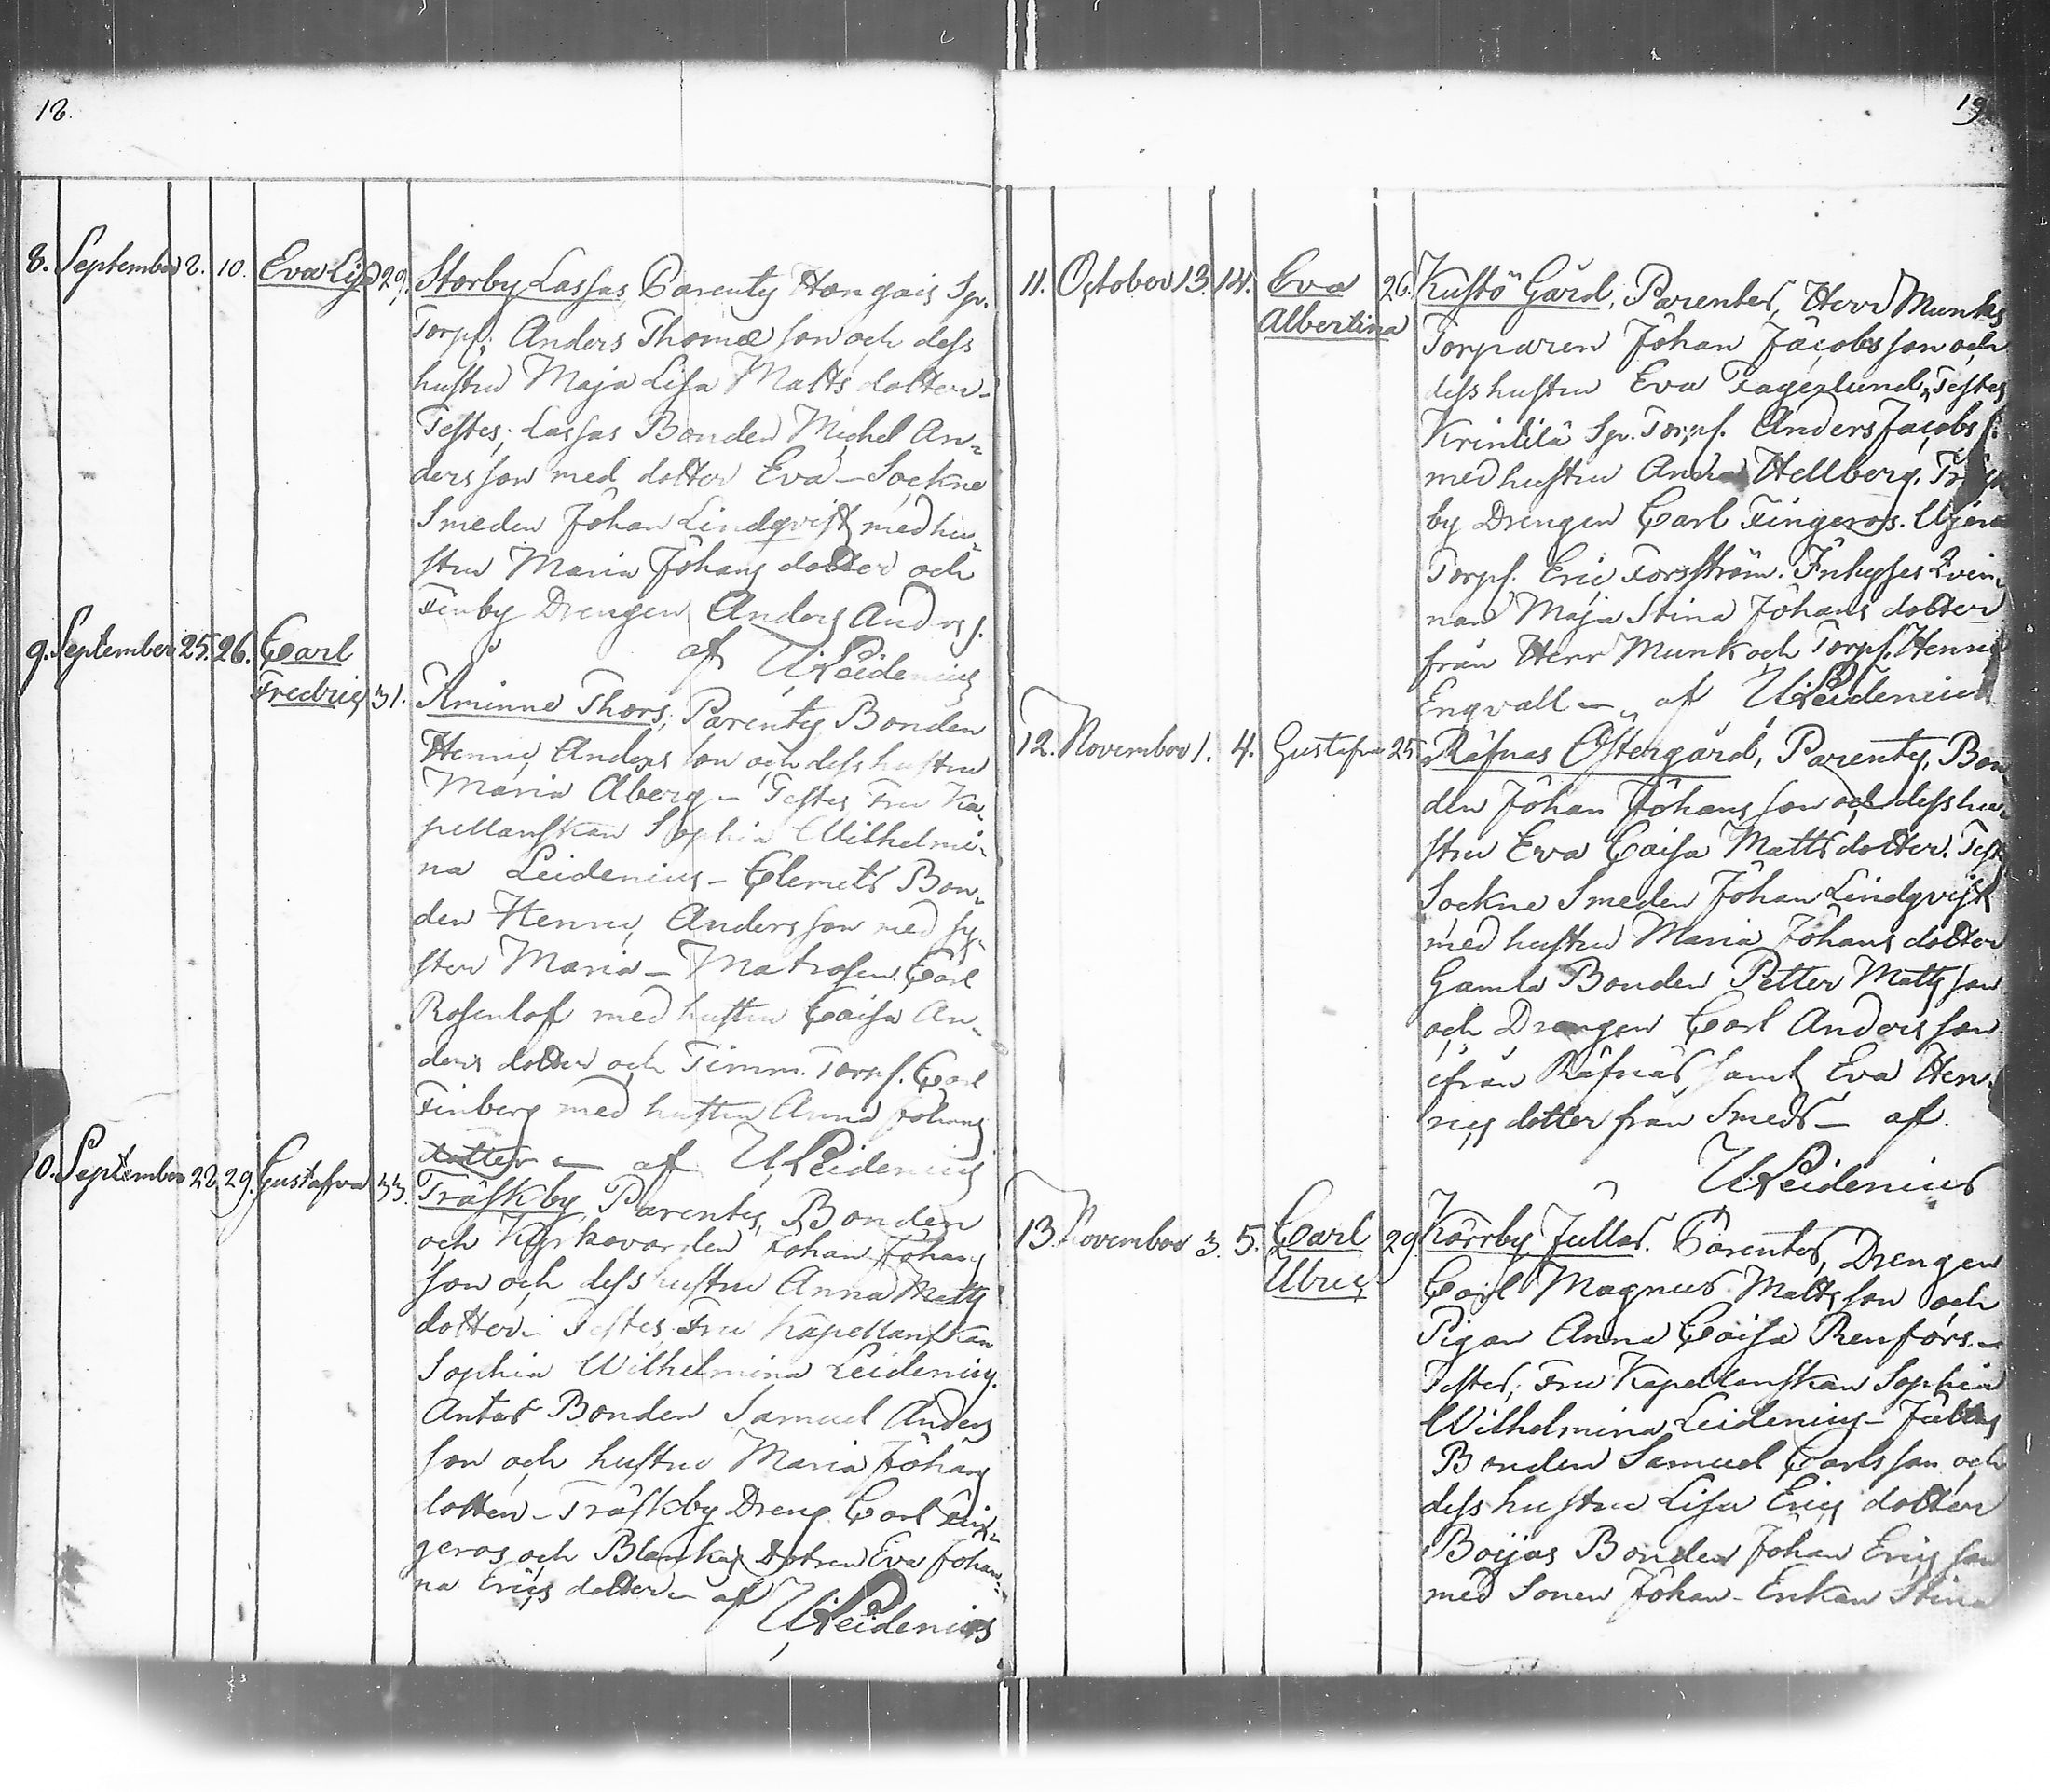 18.
8. September 8. 10. Eva Lisa 29. Storby Lassas, Parentes Hongais Sp.
Torpf. Anders Thomæ son och dess
hustru Maja Lisa Matts dotter –
Testes, Lassas Bonden Michel An=
dersson med dotter Eva – Sockne
Smeden Johan Lindqvist med hu=
stru Maria Johans dotter och
Finby Drengen Anders Anderss.
af U Leidenius
9. September 25. 26. Carl Fredric 31. Åminne Thors, Parentes Bonden
Henric Anders son och dess hustru
Maria Alberg – Testes Fru Ka=
pellanskan Sophia Wilhelmi=
na Leidenius – Clemets Bon=
den Henric Andersson med sy=
ster Maria – Matrosen Carl
Rosenlöf med hustru Caisa An=
ders dotter och Timm. Torpf. Carl
Finberg med hustru Anna Johans
dotter – af U Leidenius
10. September 28. 29. Gustafva 33. Träskby, Parentes, Bonden
och Kyrkovärden Johan Johans
son och dess hustru Anna Matts
dotter – Testes, Fru Kapellanskan
Sophia Wilhelmina Leidenius.
Antas Bonden Samuel Anders
son och hustru Maria Johans
dotter – Träskby Dreng Carl Fin=
geroos och Blankas Dotren Eva Johan=
na Erics dotter – af
U Leidenius
19
11. October 13. 14. Eva Albertina 26. Kustö Gård, Parentes, Herr Munks
Torparen Johan Jacobsson och
dess hustru Eva Fagerlund, Testes
Krintilä Sp. Torpf. Anders Jacobs s.
med hustru Anna Hellberg. Träsk
by Drengen Carl Fingeroos.
Torpf. Eric Forsström. Inhyses Qvin=
nan Maja Stina Johans dotter
från Herr Munk och Torpf. Henric
Engvall – af U Leidenius
12. November 1. 4. Gustafva 25. Räfnäs Östergård, Parentes, Bon
den Johan Johans son och dess hu=
stru Eva Caisa Matts dotter. Test
Sockne Smeden Johan Lindqvist
med hustru Maria Johans dotter
Gamla Bonden Petter Mattsson
och Drengen Carl Andersson
ifrån Räfnäs, samt Eva Hen=
rics dotter från Smeds – af
U Leidenius
13. November 3. 5. Carl Ulric 29 Karrby Jullas. Parentes, Drengen
Carl Magnus Mattsson och
Pigan Anna Caisa Renfors. –
Testes, Fru Kapellanskan Sophia
Wilhelmina Leidenius – Jullas
Bonden Samuel Carlsson och
dess hustru Lisa Erics dotter
Böijas Bonden Johan Ericsson
med Sonen Johan – Enkan Stina